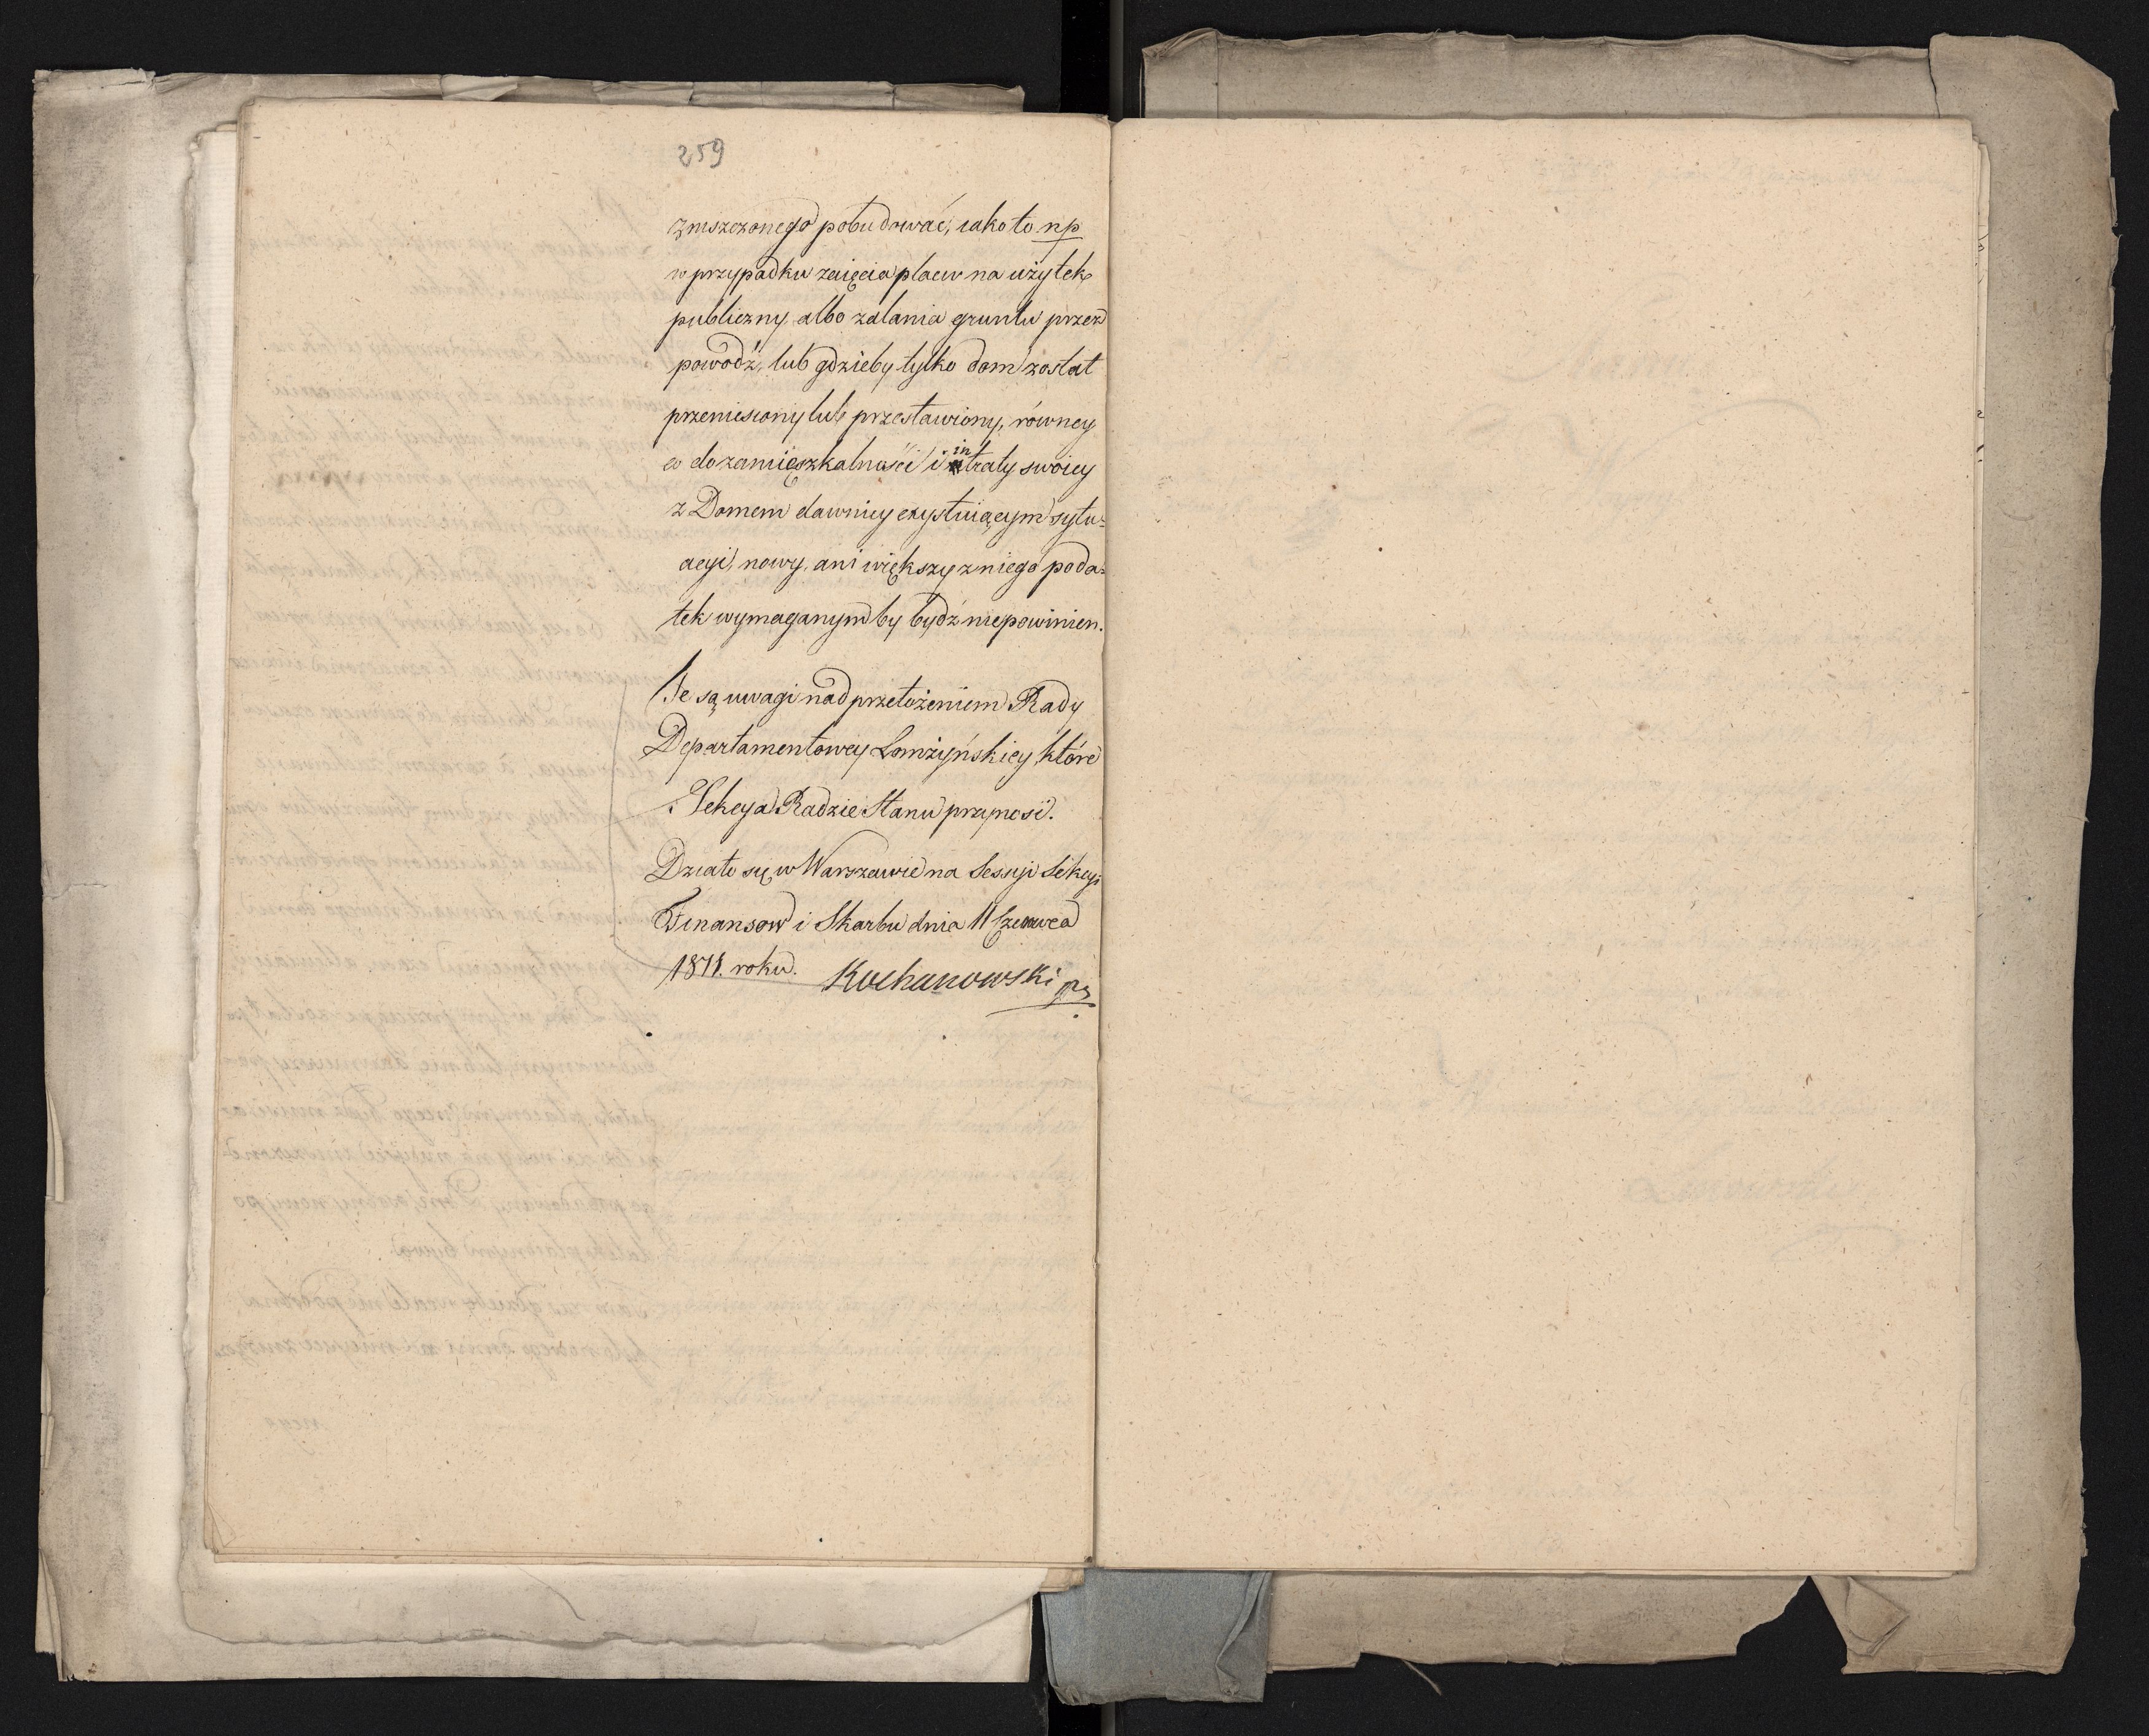 259
zniszczonego pobudować, iako to np
w przypadku zaięcia placu na użytek
publiczny, albo zalania gruntu przez
powodź, lub gdzieby tylko dom został
przeniesiony lub przestawiony, równey
co do zamieszkalności i intraty swoiey
z Domem dawniey exystuiącym sytu=
acyi, nowy, ani większy z niego poda=
tek wymaganym by bydź niepowinien.
Te są uwagi nad przełożeniem Rady
Departamentowey Łomżyńskiey, które
Sekcya Radzie Stanu przynosi.
Działo się w Warszawie na Sessyi Sekcyi
Finansow i Skarbu dnia 11 Czerwca
1811. roku. Kochanowski